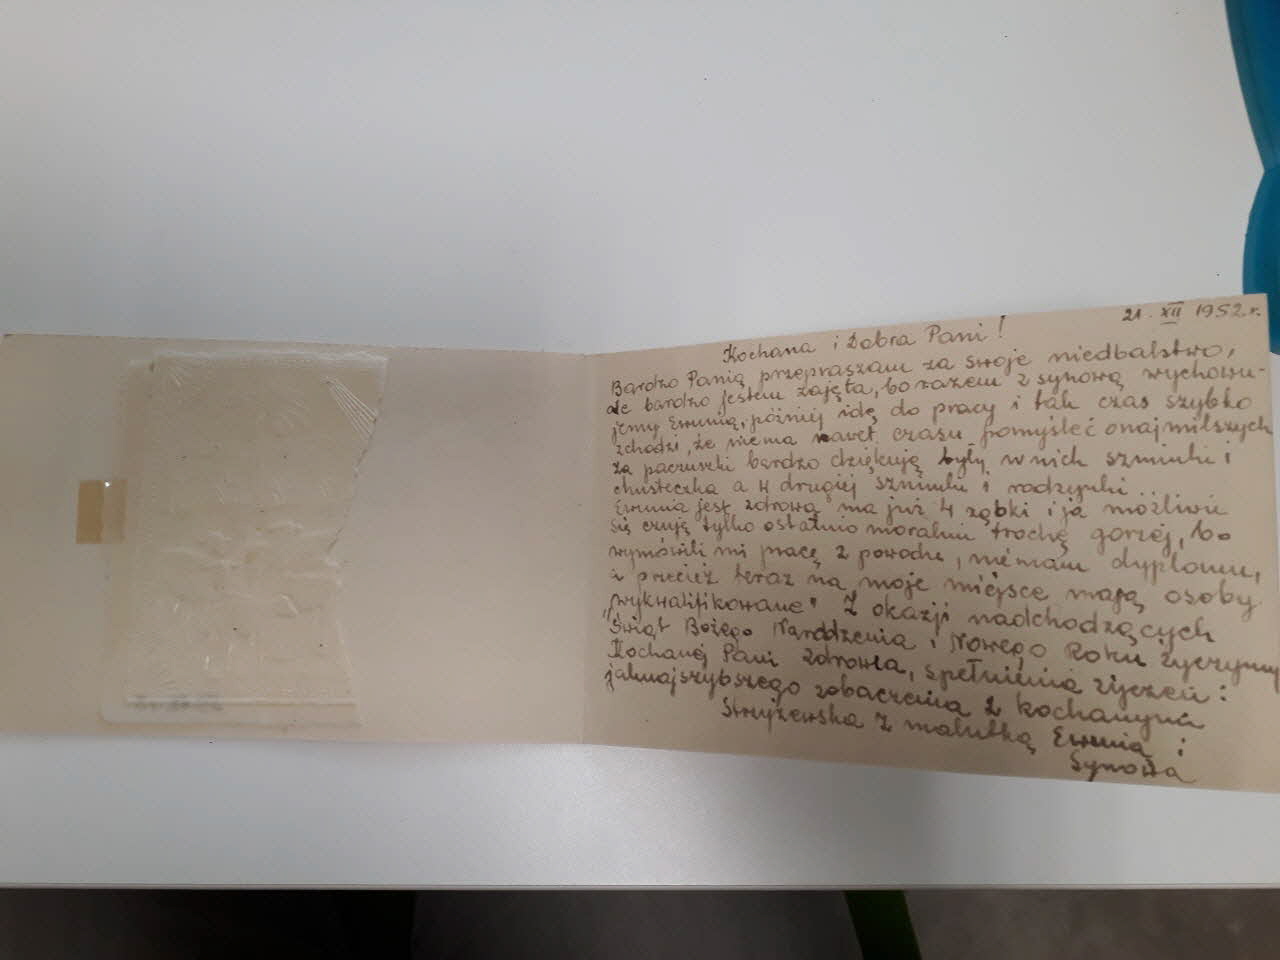 21. XII 1952 r.
Kochana i Dobra Pani!
Bardzo Panią przepraszam za swoje niedbalstwo,
ale bardzo jestem zajęta, bo razem z synową wychowu-
jemy Ewunią, później idę do pracy i tak czas szybko
zchodzi, że niema nawet czasu pomyśleć o najmilszych
za paczuszki bardzo dziękują były w nich szminki i
chusteczka a w drugiej szminki i rodzynki...
Ewunia jest zdrową ma już 4 ząbki i ja możliwie
się czuję tylko ostatnio moralnie trochę gorzej, bo
wymówili mi pracę z powodu, niemam dyplomu,
a przecież teraz na moje miejsce mają osoby
„wykwalifikowane" Z okazji nadchodzących
Świąt Bożego Narodzenia i Nowego Roku życzymy
Kochanej Pani zdrowia, spełnienia życzeń:
jaknajszybszego zobaczenia z kochanymi
Stryżewska z malutką Ewunią i
Synowa